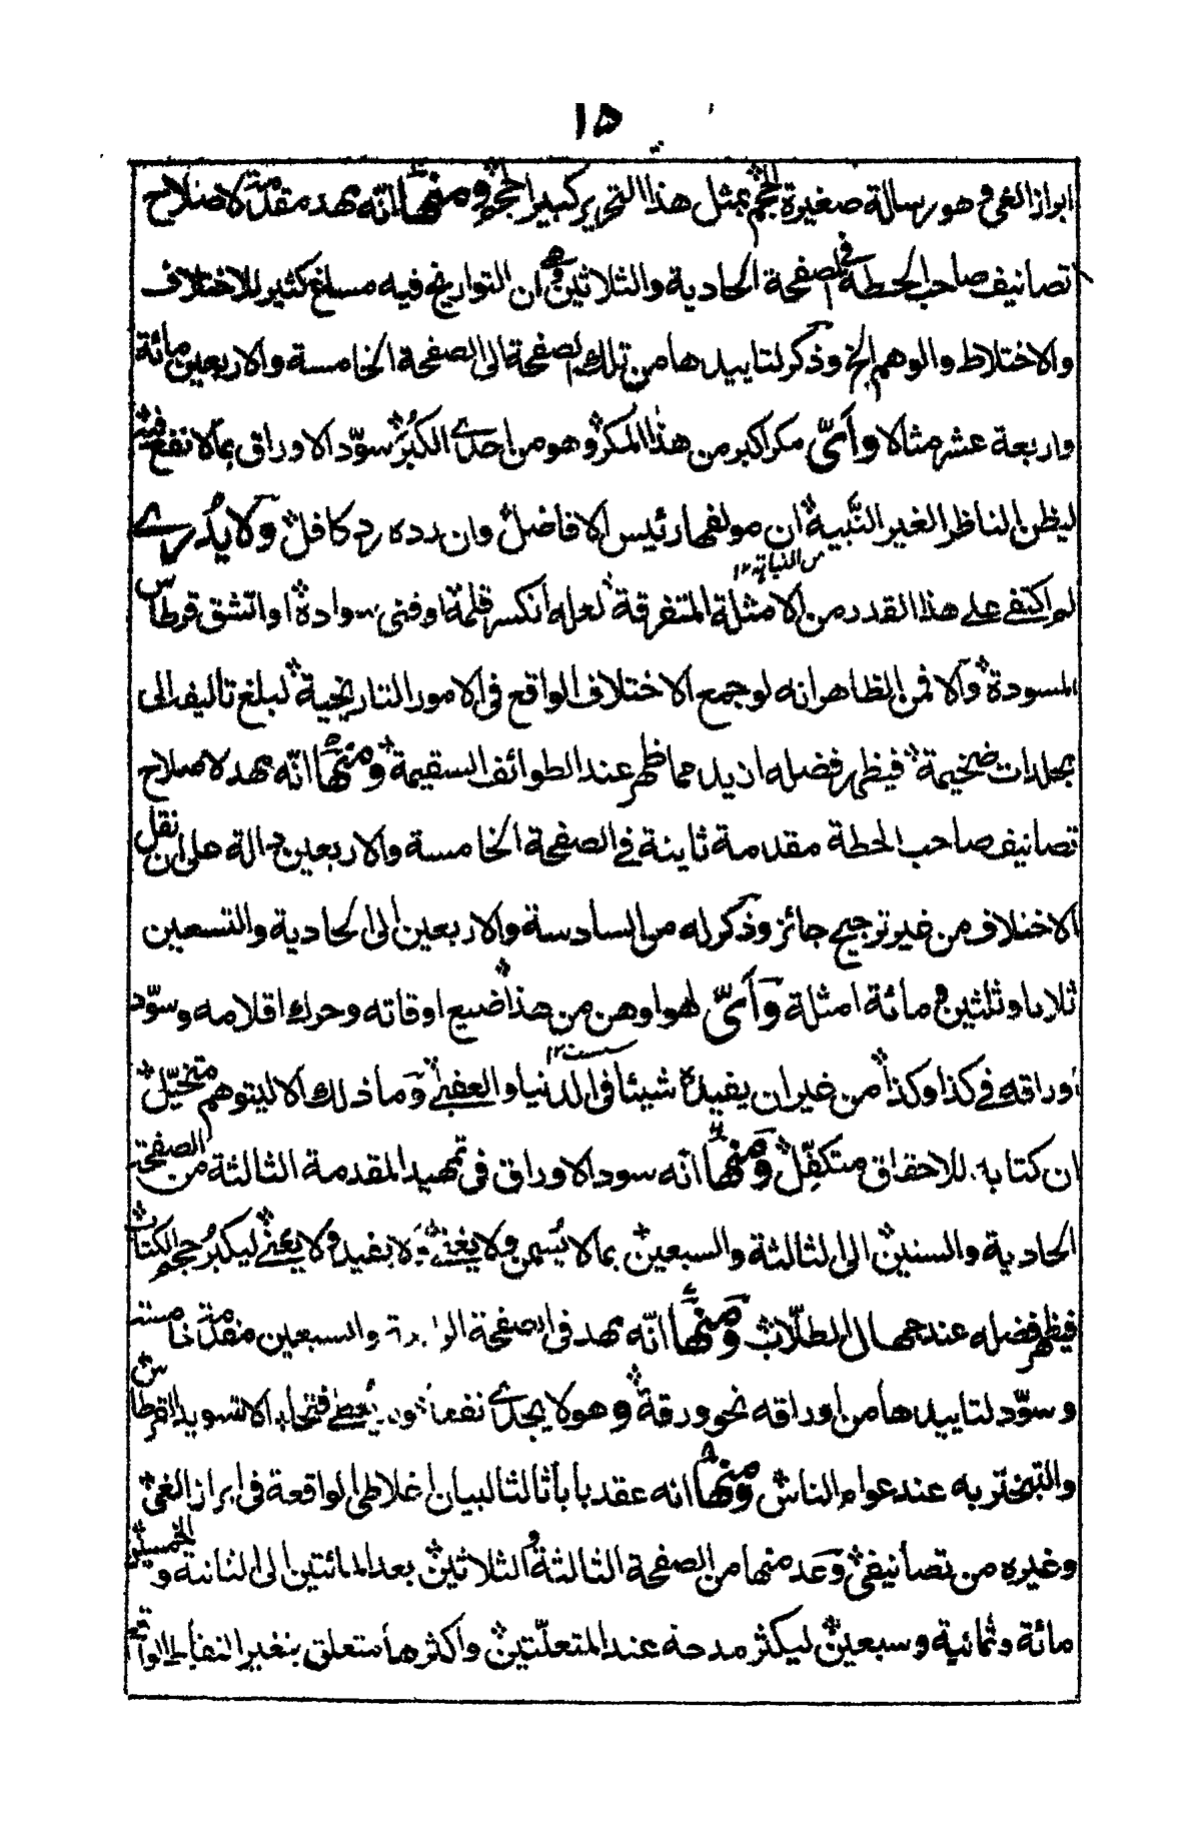 ١٥
ابراز الغي وهو رسالة صغيرة الحجم بمثل هذا التحرير كبير الحجم ومنها انّه مهد مقدمة لاصلاح
تصانيف صاحب الحطة في الصفحة الحادية والثلاثين وهي ان التواريخ فيه مساغ كثير للاختلاف
والاختلاط والوهم الخ وذكر لتاييدها من تلك الصفحة الى الصفحة الخامسة والاربعين مائة
واربعة عشر مثالا وأيّ مكر اكبر من هذا المكر وهو من احدى الكُبَر سوّد الاوراق بما لا نفع فيه
ليظن الناظر الغير النَّبيه ان مولفها رئيس الافاضل وان رده رد كافل ولا يدرى
من النباهة ١٢
لم اكتفى على هذا القدر من الامثلة المتفرقة لعله انكسر قلمه او فنى سواده او انشق قرطاس
المسودة والا فمن الظاهر انه لو جمع الاختلاف الواقع فى الامور التاريخية لبلغ تاليفه الى
مجلدات ضخيمة فيظهر فضله ازيد مما ظهر عند الطوائف السقيمة ومنها انّه مهد لاصلاح
تصانيف صاحب الحطة مقدمة ثانية في الصفحة الخامسة والاربعين دالة على ان نقل
الاختلاف من غير ترجيح جائز وذكر له من السادسة والاربعين الى الحادية والتسعين
ثلاثا وثلثين ومائة امثلة وأيّ لهو اوهن من هذا ضيع اوقاته وحرك اقلامه وسوّد
سست ١٢
اوراقه في كذا وكذا من غير ان يفيده شيئا فى الدنيا والعقبى وما ذلك الا ليتوهم متخيّل
ان كتابه للاحقاق متكفّل ومنها انّه سود الاوراق فى تمهيد المقدمة الثالثة من الصفحة
الحادية والستين الى الثالثة والسبعين بما لا يُسمن ولا يغنى ولا يفيد ولا يعنى ليكبُر حجم الكتاب
فيظهر فضله عند جهال الطلّاب ومنها انّه مهد فى الصفحة الرابعة والسبعين مقدمة خامسة
وسوّد لتاييدها من اوراقه نحو ورقة وهو لا يجدى نفعا ولا يعطى فتحا الا تسويد القرطاس
والتبختر به عند عوام الناس ومنها انه عقد بابا ثالثا لبيان اغلاطى الواقعة فى ابراز الغى
وغيره من تصانيفى وعد منها من الصفحة الثالثة والثلاثين بعد المائتين الى الثانية والخمسين
مائة وثمانية وسبعين ليكثر مدحه عند المتعلّتين واكثرها متعلق بتغير النفاط